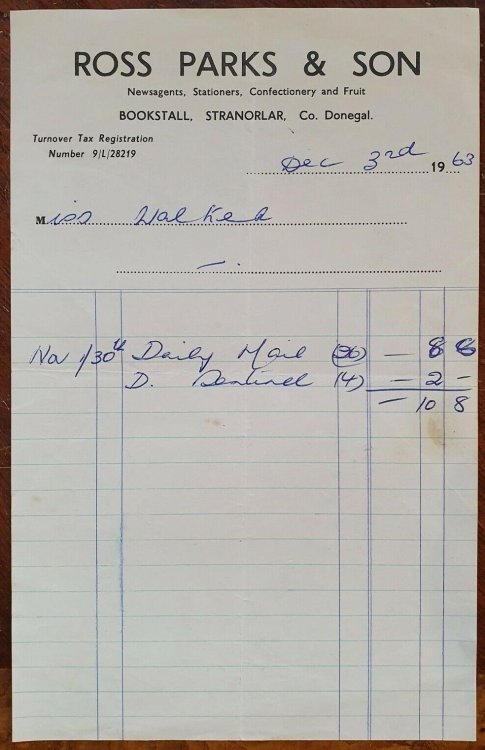 ROSS PARKS & SON
Newsagents, Stationers, Confectionery and Fruit
BOOKSTALL, STRANORLAR, Co. Donegal.
Turnover Tax Registration
Number 9/L/28219
Dec 3rd 1963
Miss Walker
Nov 1/30th Daily Mail (26) — 8 8
D. Sentinel (4) — 2 —
— 10 8